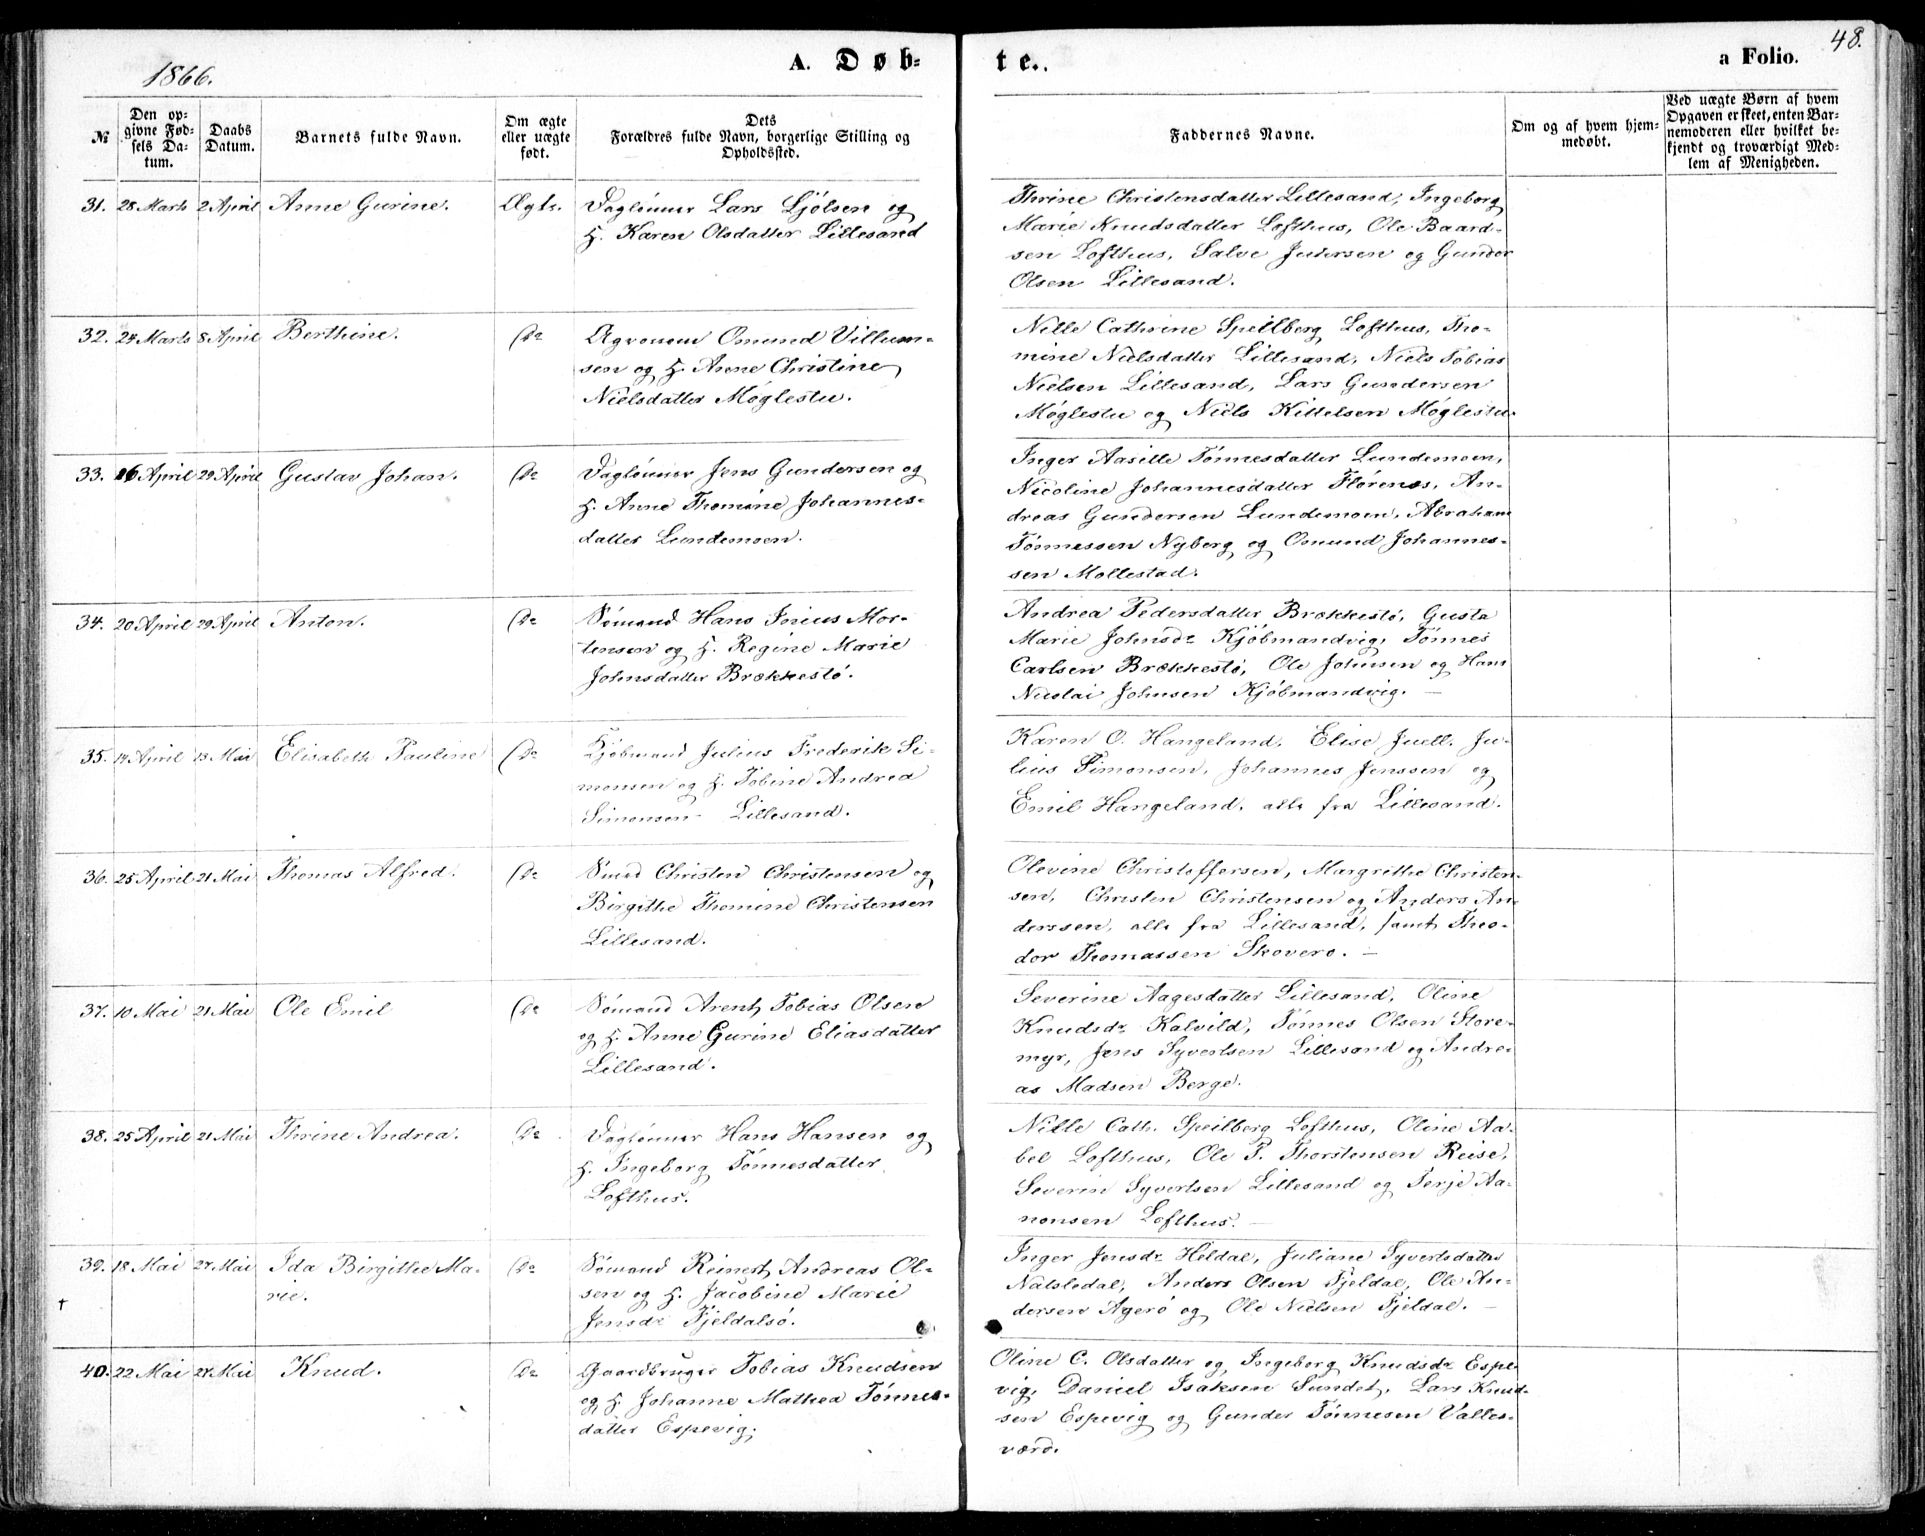 1866.
A. Døb-
te..
a Folio.
48.
№
Den op-
givne Fød-
sels Da-
tum.
Daabs
Datum.
Barnets fulde Navn.
Om ægte
eller uægte
født.
Dets
Forældres fulde Navn, borgerlige Stilling og
Opholdssted.
Faddernes Navne.
Om og af hvem hjem-
medøbt.
Ved uægte Børn af hvem
Opgaven er skeet, enten Bar-
nemoderen eller hvilket be-
kjendt og troværdigt Med-
lem af Menigheden.
31. 28 Marts 2 April Anne Gurine. Ægte.
Daglønner Lars Ljølsen og
H. Karen Olsdatter Lillesand
Thrine Christensdatter Lillesand, Ingeborg
Marie Knudsdatter Lofthus, Ole Baard-
sen Lofthus, Salve Julersen og Gunder
Olsen Lillesand.
32. 24 Marts 8 April Berthine. Do
Agronom Omund Villum-
sen og H. Anne Christine
Nielsdatter Møglestu.
Nille Cathrine Speilberg Lofthus, Tho-
mine Nielsdatter Lillesand, Niels Tobias
Nielsen Lillesand, Lars Gundersen
Møglestu og Niels Kittelsen Møglestu.
33. 16 April 29 April Gustav Johan. Do
Daglønner Jens Gundersen og
H. Anne Thomine Johannes-
datter Lundemoen.
Inger Aasille Tønnesdatter Lundemoen,
Nicoline Johannesdatter Flørenes, An-
dreas Gundersen Lundemoen, Abraham
Tønnessen Nyberg og Omund Johannes-
sen Mollestad.
34. 20 April 29 April Anton. Do
Sømand Hans Inius Mor-
tensen og H. Regine Marie
Johnsdatter Brækkestø.
Andrea Pedersdatter Brækkestø, Gusta
Marie Johnsdr Kjøbmandvig, Tønnes
Carlsen Brækkestø, Ole Johnsen og Hans
Nicolai Johnsen Kjøbmandvig. —
35. 14 April 13 Mai Elisabeth Pauline Do
Kjøbmand Julius Frederik Si-
monsen og H. Tobine Andrea
Simonsen Lillesand.
Karen O. Hangeland, Elise Juell, Ju-
lius Simonsen, Johannes Jenssen og
Emil Hangeland, alle fra Lillesand.
36. 25 April 21 Mai Thomas Alfred. Do
Smed Christen Christensen og
Birgithe Thomine Christensen
Lillesand.
Olevine Christoffersen, Margrethe Christen-
sen, Christen Christensen og Anders An-
derssen, alle fra Lillesand, samt Theo-
dor Thomassen Skovero. —
37. 10 Mai 21 Mai Ole Emil Do
Sømand Arent Tobias Olsen
og H. Anne Gurine Eliasdatter
Lillesand.
Severine Aagesdatter Lillesand, Oline
Knudsdr Kalvild, Tønnes Olsen Store-
myr, Jens Syvertsen Lillesand og Andre-
as Madsen Berge.
38. 25 April 21 Mai Thrine Andrea. Do
Daglønner Hans Hansen og
H. Ingeborg Tønnesdatter
Lofthus.
Nille Cath. Speilberg Lofthus, Oline Aa-
bel Lofthus, Ole P. Thorstensen Reise,
Severin Syvertsen Lillesand og Terje Aa-
nonsen Lofthus. —
39. 18 Mai 27 Mai Ida Birgithe Ma-
rie. Do
Sømand Reinert Andreas Ol-
sen og H. Jacobine Marie
Jensdr Fjeldalsø.
Inger Jensdr Heldal, Juliane Syvertsdatter
Natsledal, Anders Olsen Fjeldal, Ole An-
dersen Agerø og Ole Nielsen Fjeldal. —
40. 22 Mai 27 Mai Knud. Do
Gaardbruger Tobias Knudsen
og H. Johanne Mathea Tønnes-
datter Espevig;
Oline C. Olsdatter og Ingeborg Knudsdr Espe-
vig, Daniel Isaksen Sundet, Lars Knud-
sen Espevig og Gunder Tønnesen Valles-
værd.